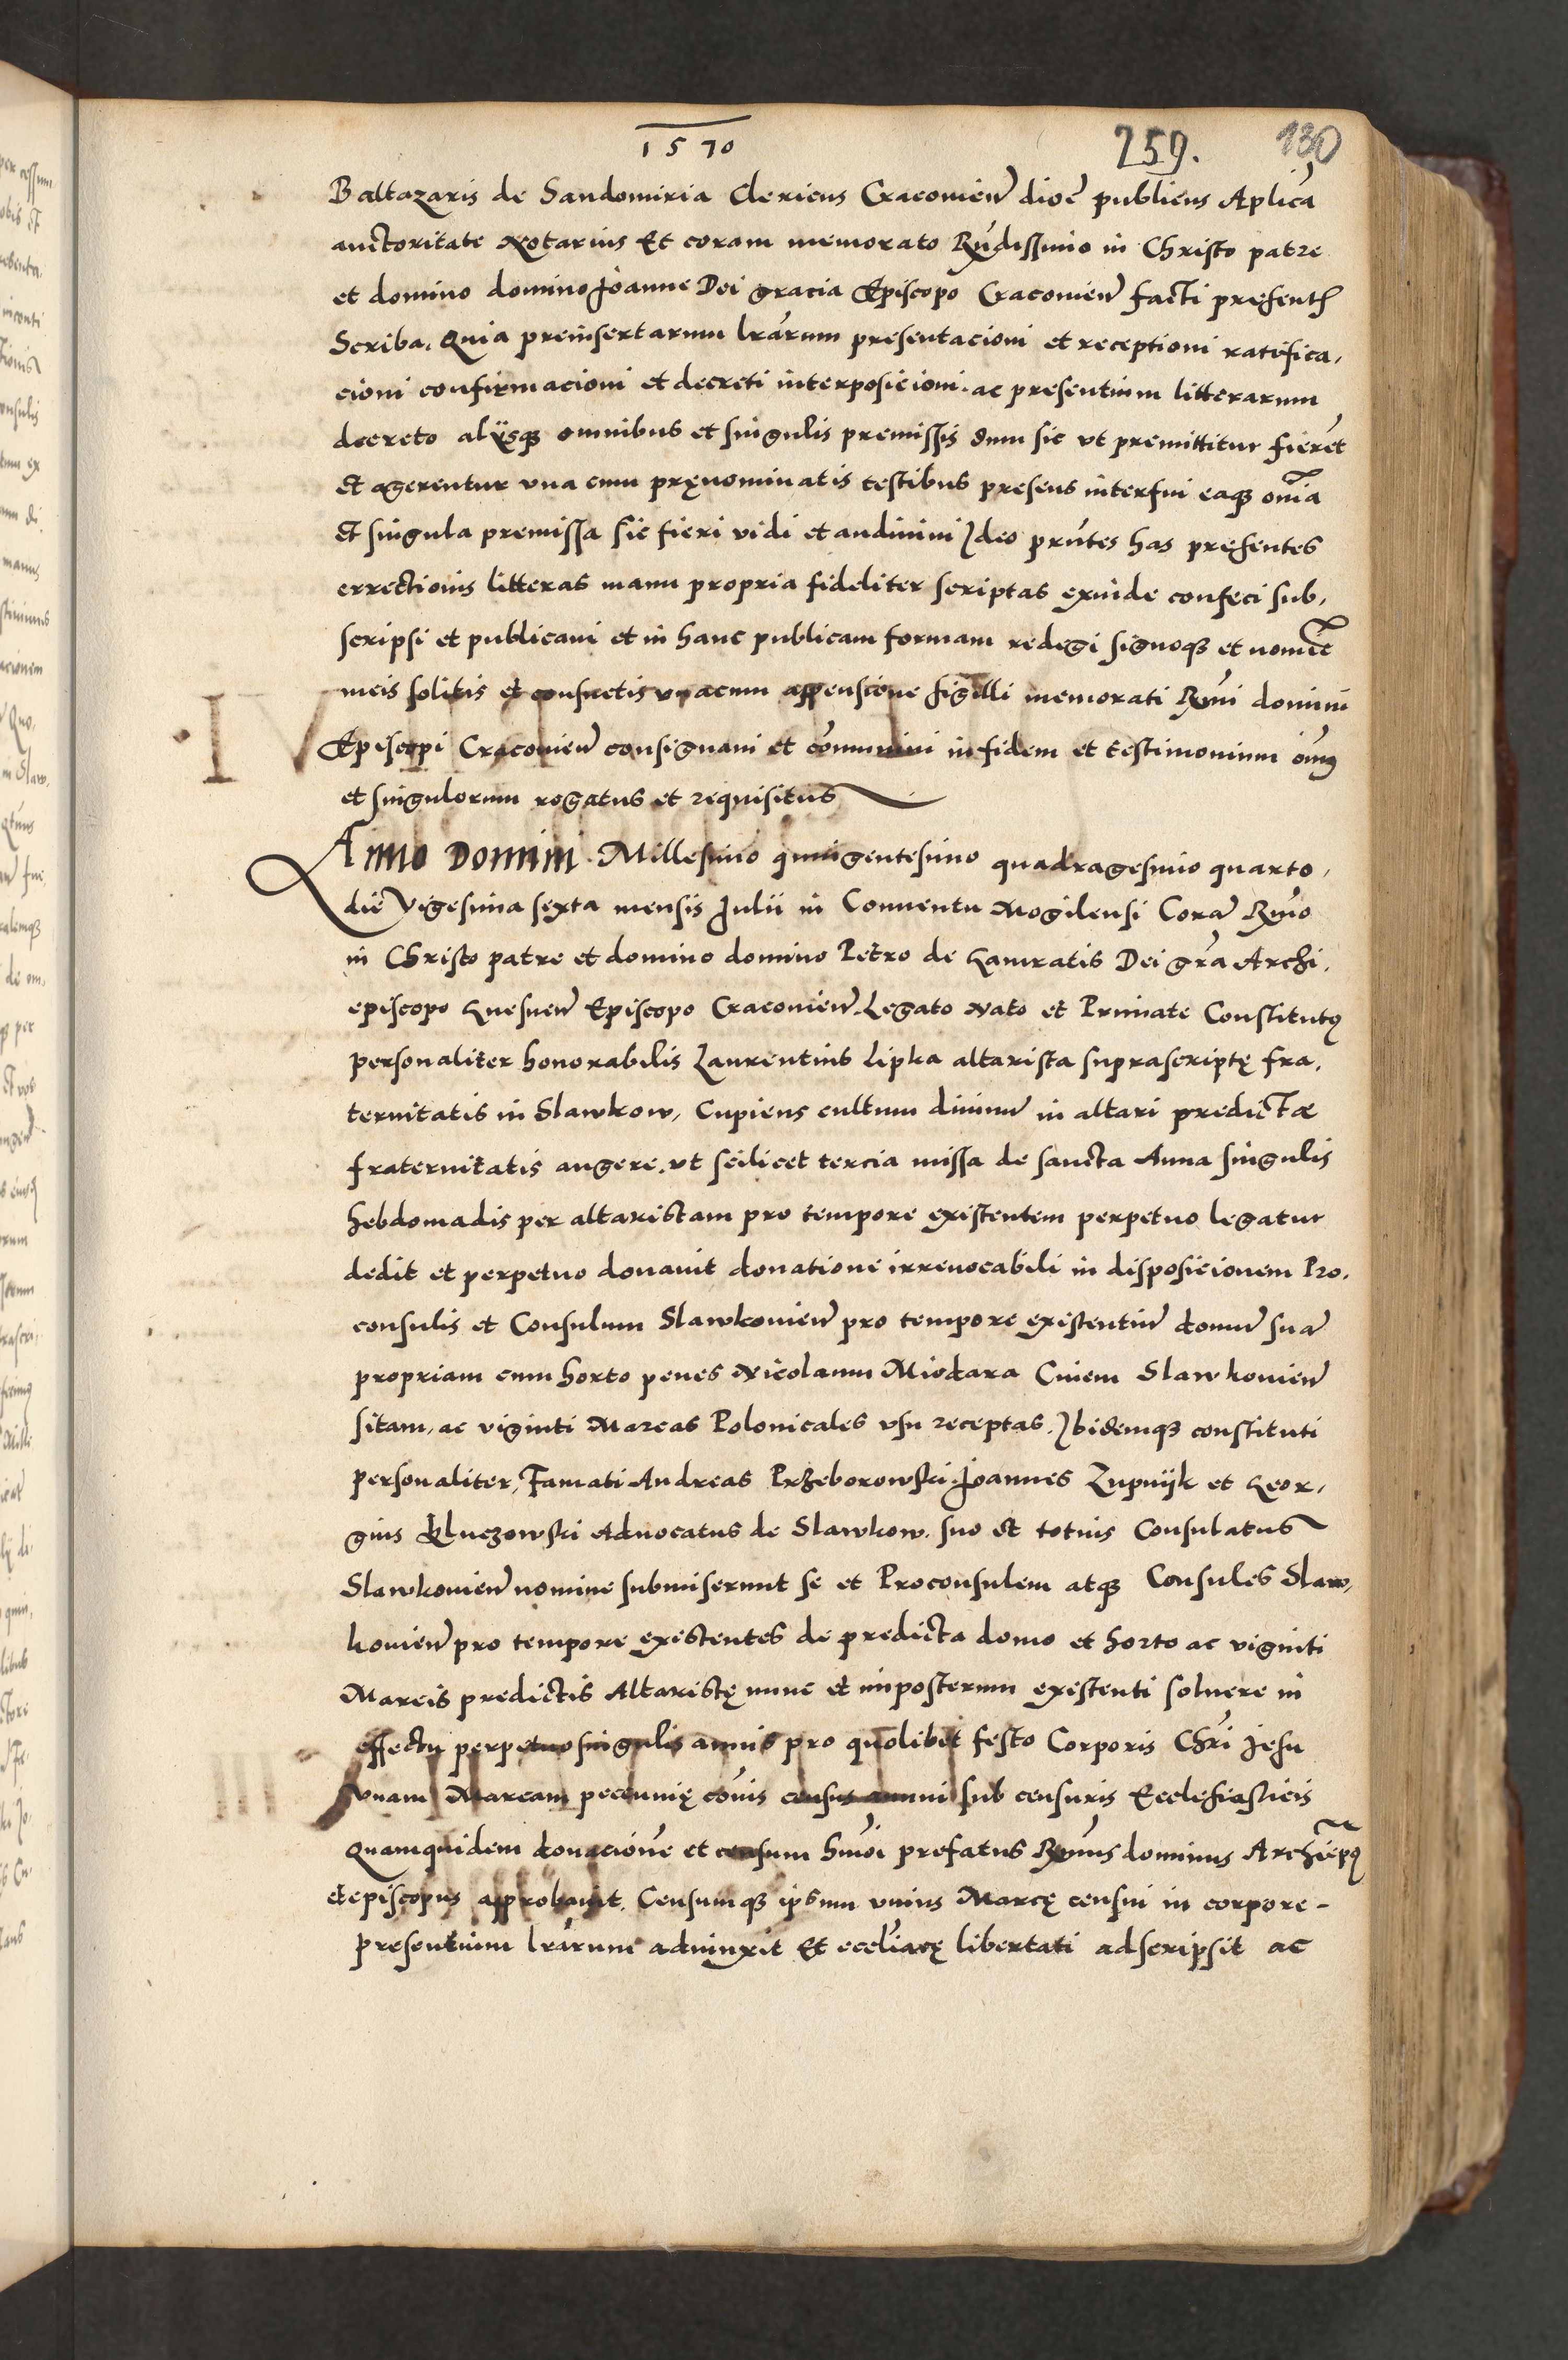 1570 259. 130
Baltazaris de Sandomiria Clericus Cracovien̄ dioc̄ publicus Aplica
auctoritate Notarius Et coram memorato Rn̄dissimo in Christo patre
et domino domino Joanne Dei gracia Episcopo Cracovien̄ facti presenti
Scriba. Quia preinsertarum lrarum presentacioni et receptioni ratifica,
cioni confirmacioni et decreti interposicioni. ac presentium litterarum
decreto alijsq3 omnibus et singulis premissis dum sic vt premittitur fierēt
et agerentur vna cum pręnominatis testibus presens interfui eaq3 om̄ia
et singula premissa sic fieri vidi et audiuiui Ideo prn̄tes has pręsentes
errectionis litteras manu propria fideliter scriptas exinde confeci sub,
scripsi et publicaui et in hanc publicam formam redegi signoq3 et nomīe
meis solitis et consuetis vnacum appensione sigilli memorati Rm̄i domini
Episcopi Cracovien̄ consignaui et com̄muniui in fidem et testimonium om̄iu3
et singulorum rogatus et requisitus
Anno Domini Millesimo quingentesimo quadragesimo quarto,
die vigesima sexta mensis Julii in Conuentu Mogilensi Corā Rm̄o
in Christo patre et domino domino Petro de Gamratis Dei gr̄a Archi,
episcopo Gnesnen̄ Episcopo Cracovien̄. Legato Nato et Primate Constitutus
personaliter honorabilis Laurentius Lipka altarista suprascriptę fra,
ternitatis in Slawkow, Cupiens cultum diuinū in altari predictæ
fraternitatis augere. vt scilicet tercia missa de sancta Anna singulis
hebdomadis per altaristam pro tempore existentem perpetuo legatur
dedit et perpetuo donauit donatione irreuocabili in disposicionem Pro,
consulis et Consulum Slawkovien̄ pro tempore existentiū domū suā
propriam cum horto penes Nicolaum Miodara Ciuem Slawkovien̄
sitam, ac viginti Marcas Polonicales vsu receptas. Ibidemq3 constituti
personaliter, Famati Andreas Przeborowski. Joannes Zupnijk et Geor,
gius Kluczowski Aduocatus de Slawkow. suo et totius Consulatus
Slawkovien̄ nomine submiserunt se et Proconsulem atq3 Consules Slaw,
kovien̄ pro tempore existentes de predicta domo et horto ac viginti
Marcis predictis Altaristę nunc et imposterum existenti soluere in
effectu perpetuo singulis annis pro quolibet festo Corporis Chr̄i Jesu
vnam Marcam pecunię cōis census annui sub censuris Ecclesiasticis
Quamquidem donacionē et censum hmōi prefatus Rm̄us dominus Archiepus
et episcopus approbauit. Censumq3 ipsum vnius Marcę censui in corpore -
presentium lrarum adiunxit Et eccliacę libertati adscripsit ac